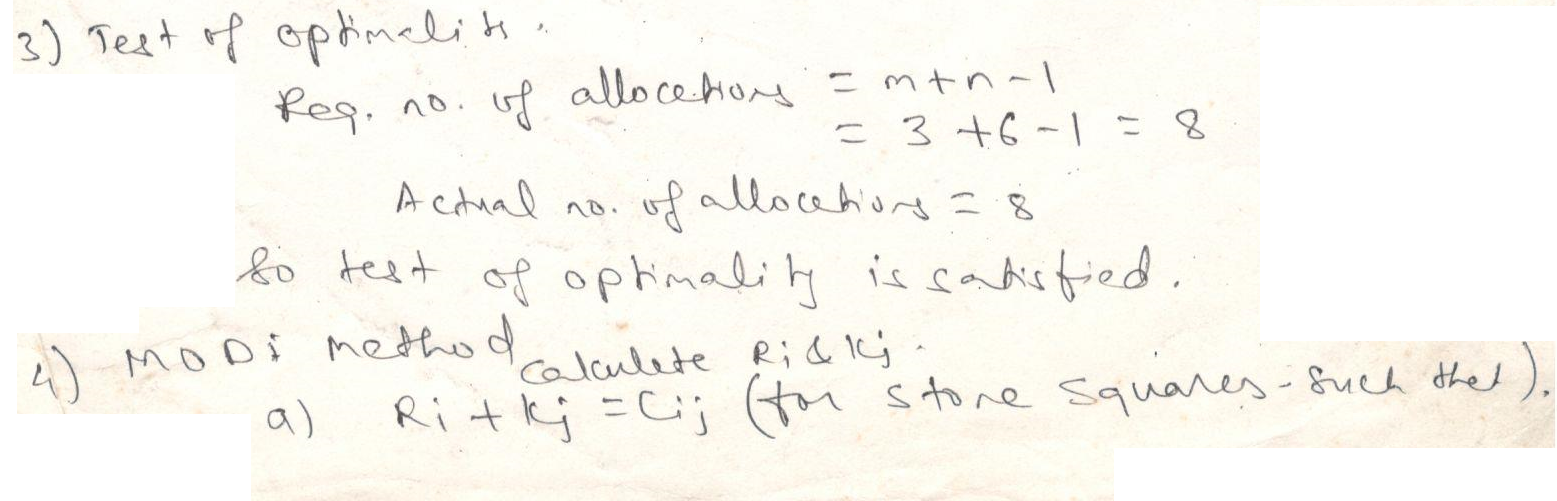 3) Test of optimality.
Req. no. of allocations = m+n-1
= 3+6-1 = 8
Actual no. of allocations = 8
So test of optimality is satisfied.
4) MODi method calculate Ri & Kj.
a) Ri + Kj = Cij (for stone squares - such that).